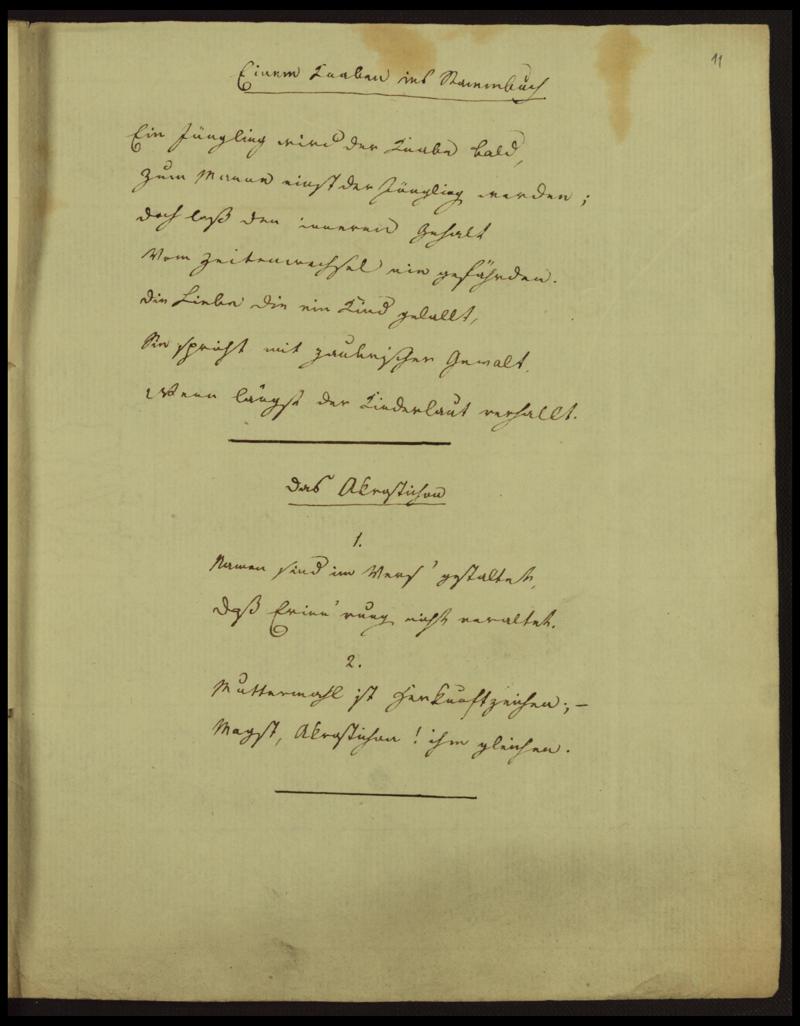 11
Einem Knaben ins Stammbuch
Ein Jüngling wird der Knabe bald,
Zum Manne einst der Jüngling werden;
Doch laß den inneren Gehalt
Vom Zeitenwechsel nie gefährden.
Die Liebe die ein Kind gelallt,
Sie spricht mit zaubrischer Gewalt,
Wenn längst der Kinderlaut verhallt.
Das Akrostichon
1.
Namen sind im Vers' gestaltet,
Daß Erinn'rung nicht veraltet.
2.
Muttermahl ist Herkunftzeichen; –
Magst, Akrostichon! ihm gleichen.